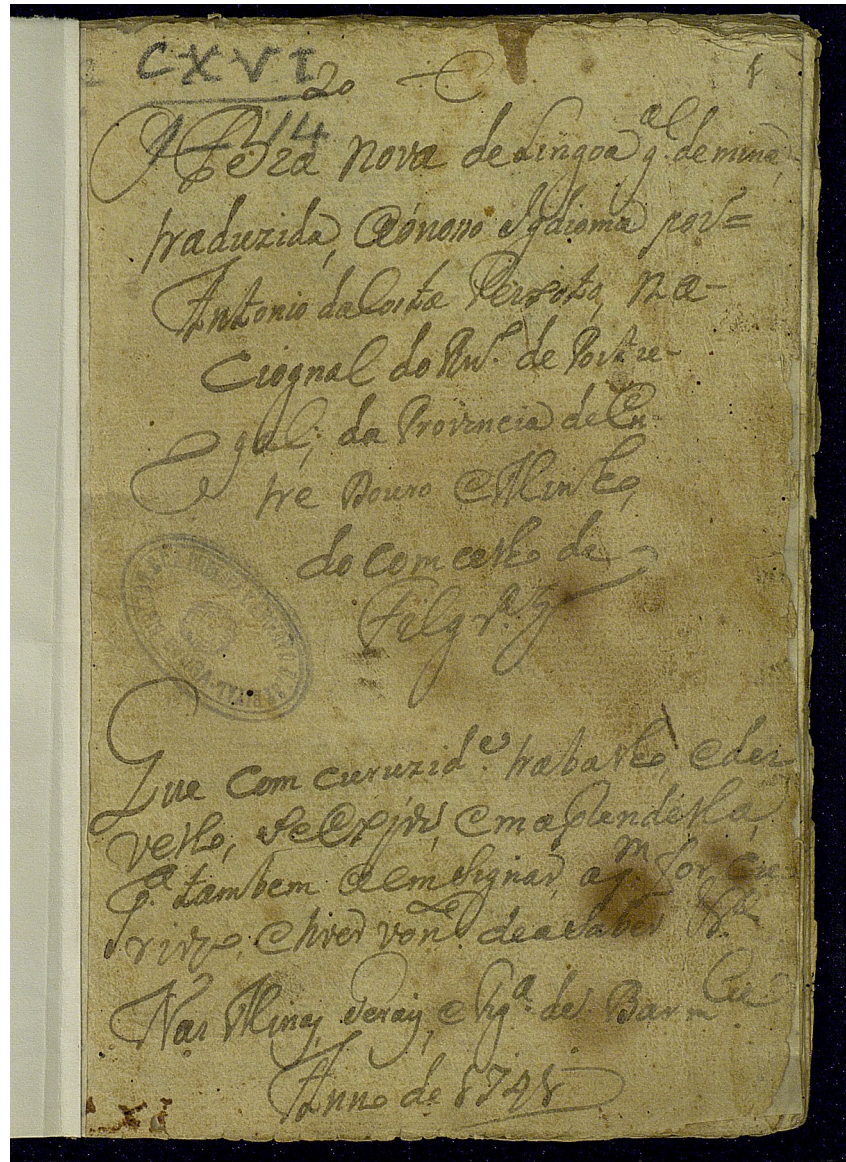 CXVI
1-14
Obra nova de Lingoa g.al de mina,
traduzida, ao nosso Igdioma por=
Antonio da Costa Peixoto, Na-
ciognal do Rn.º de Portu-
gal; da Provincia de En-
tre Douro e Minho,
do comcelho de
Filgr.as
Que com curuzid.e trabalho, e des
vello, se expós, em aplendella,
p.a tambem a emsignar, a q.m for, cu
riozo, e tiver von.de de a saber
Nas Minas Gerais, e frg.a de S. Barm.eu
Anno de 1741